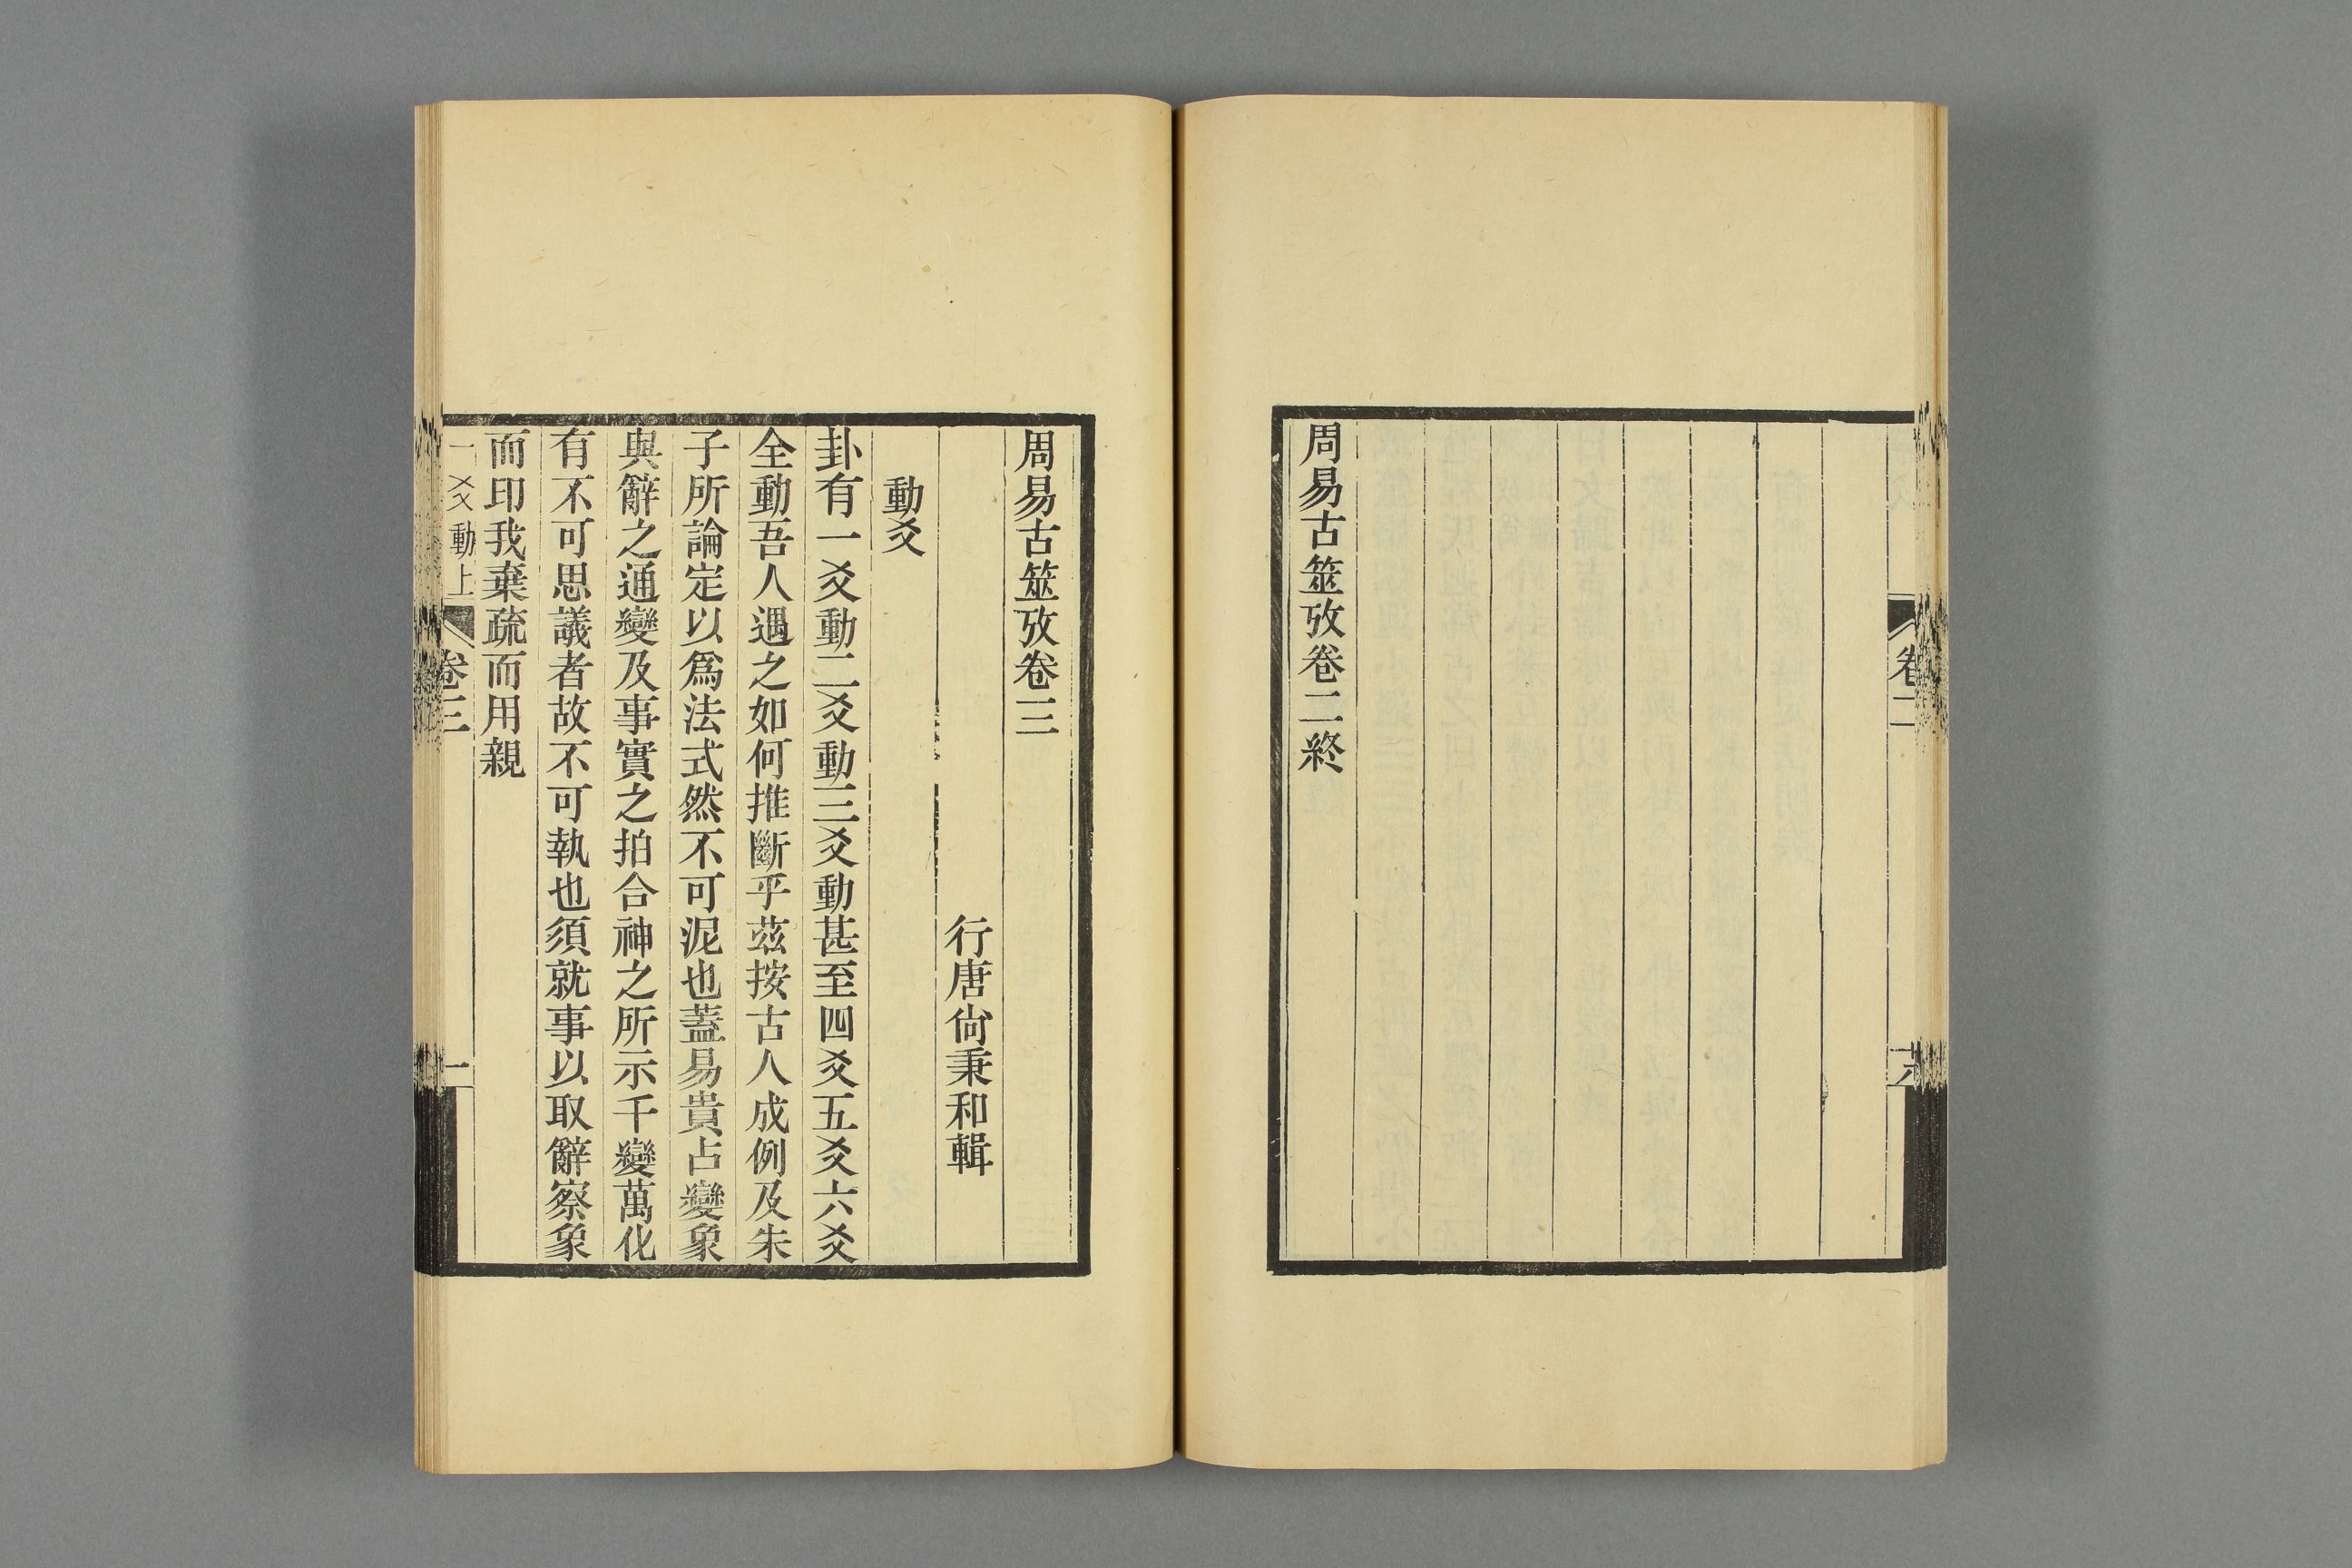 卷二
十六
周易古筮攷卷二終
周易古筮攷卷三
行唐尙秉和輯
動爻
卦有一爻動二爻動三爻動甚至四爻五爻六爻
全動吾人遇之如何推斷乎茲按古人成例及朱
子所論定以爲法式然不可泥也蓋易貴占變象
與辭之通變及事實之拍合神之所示千變萬化
有不可思議者故不可執也須就事以取辭察象
而印我棄疏而用親
一爻動上
卷三
一